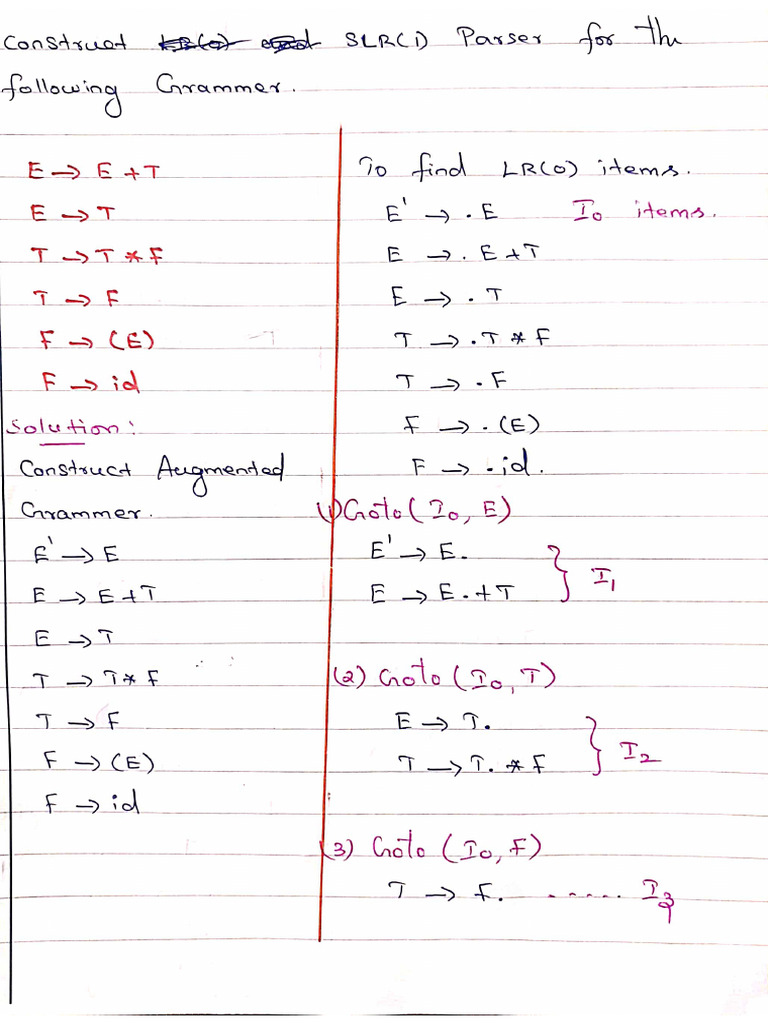 Construct SLR(1) Parser for the
following Grammer.
E → E + T
E → T
T → T * F
T → F
F → (E)
F → id
Solution:
Construct Augmented
Grammer.
E' → E
E → E + T
E → T
T → T * F
T → F
F → (E)
F → id
To find LR(0) items.
E' → . E I0 items.
E → . E + T
E → . T
T → . T * F
T → . F
F → . (E)
F → . id.
(1) Goto (I0, E)
E' → E.
E → E. + T } I1
(2) Goto (I0, T)
E → T.
T → T. * F } I2
(3) Goto (I0, F)
T → F. ...... I3